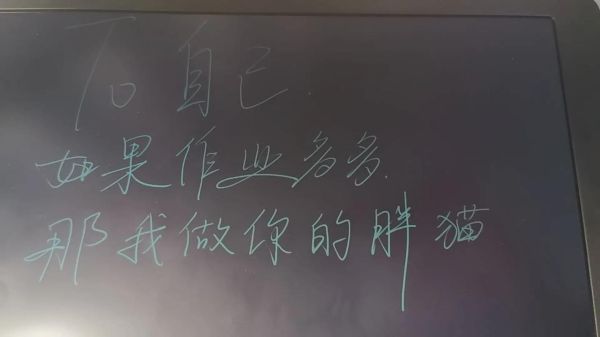 To 自己
如果作业多多
那我做你的胖猫